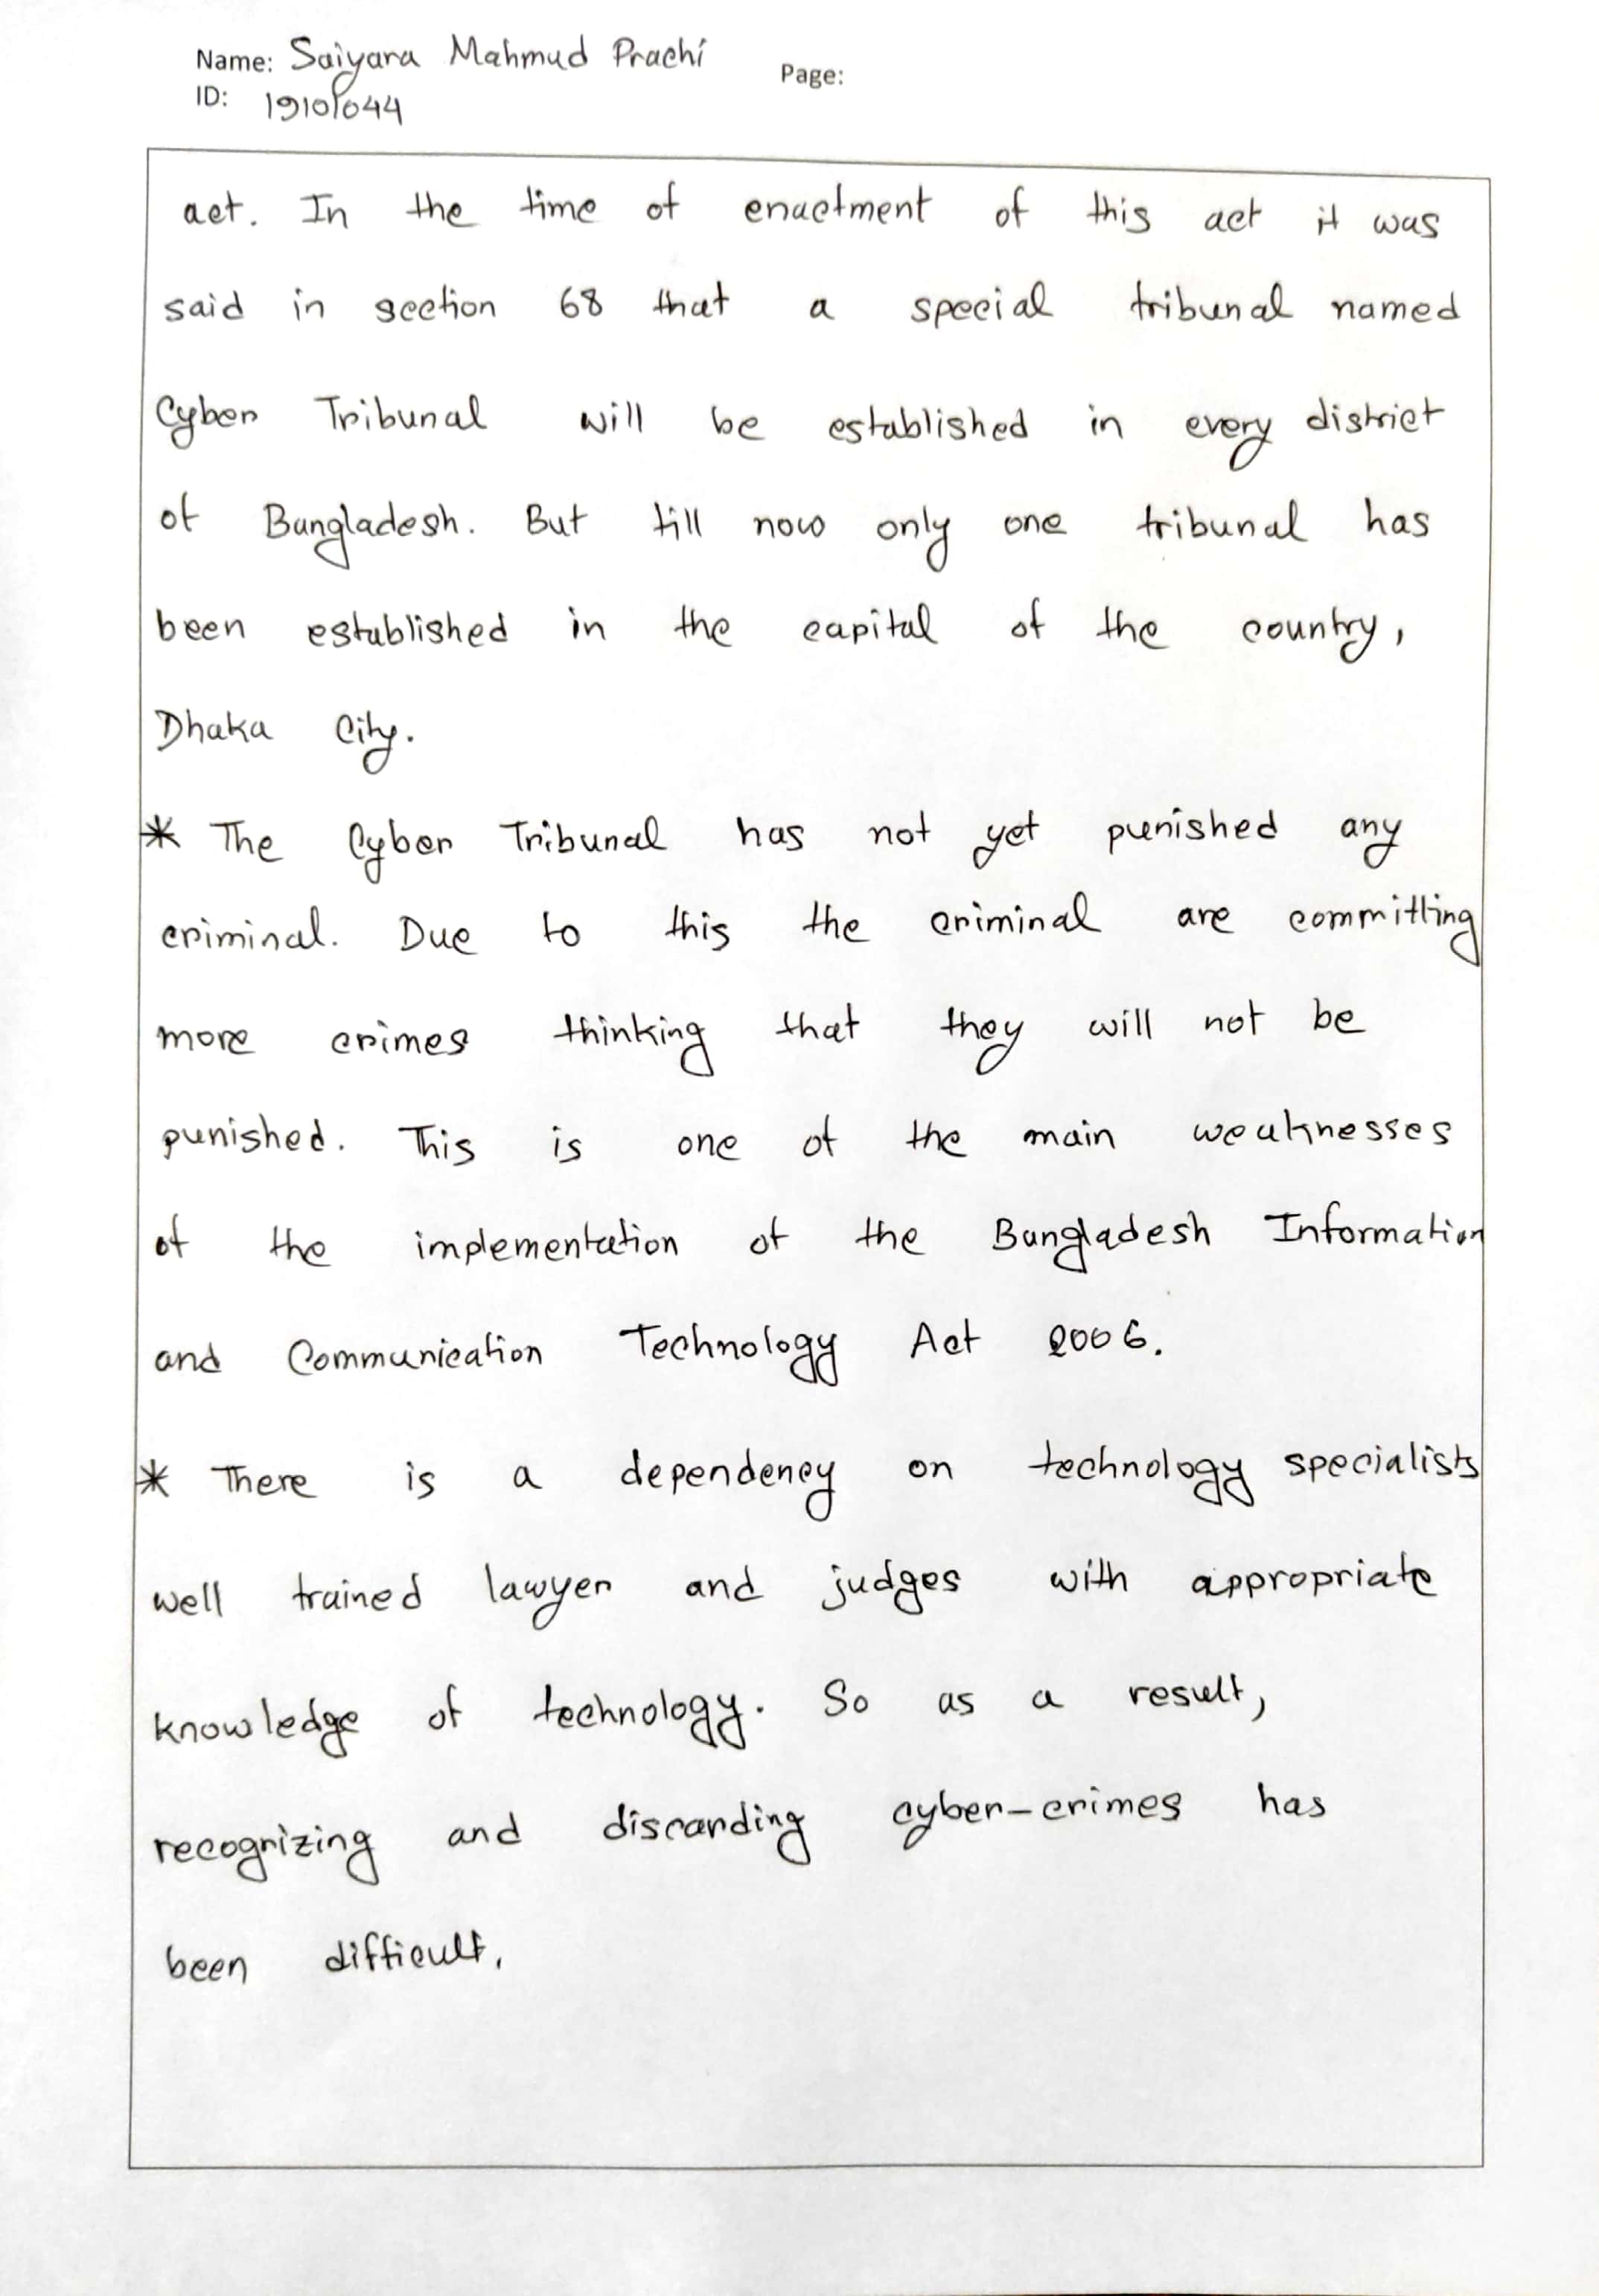 Name: Saiyara Mahmud Prachi
Page:
ID: 19101044
act. In the time of enactment of this act it was
said in section 68 that a special tribunal named
Cyber Tribunal will be established in every district
of Bangladesh. But till now only one tribunal has
been established in the capital of the country,
Dhaka City.
* The Cyber Tribunal has not yet punished any
criminal. Due to this the criminal are committing
more crimes thinking that they will not be
punished. This is one of the main weaknesses
of the implementation of the Bangladesh Information
and Communication Technology Act 2006.
* There is a dependency on technology specialists
well trained lawyer and judges with appropriate
knowledge of technology. So as a result,
recognizing and discarding cyber-crimes has
been difficult.